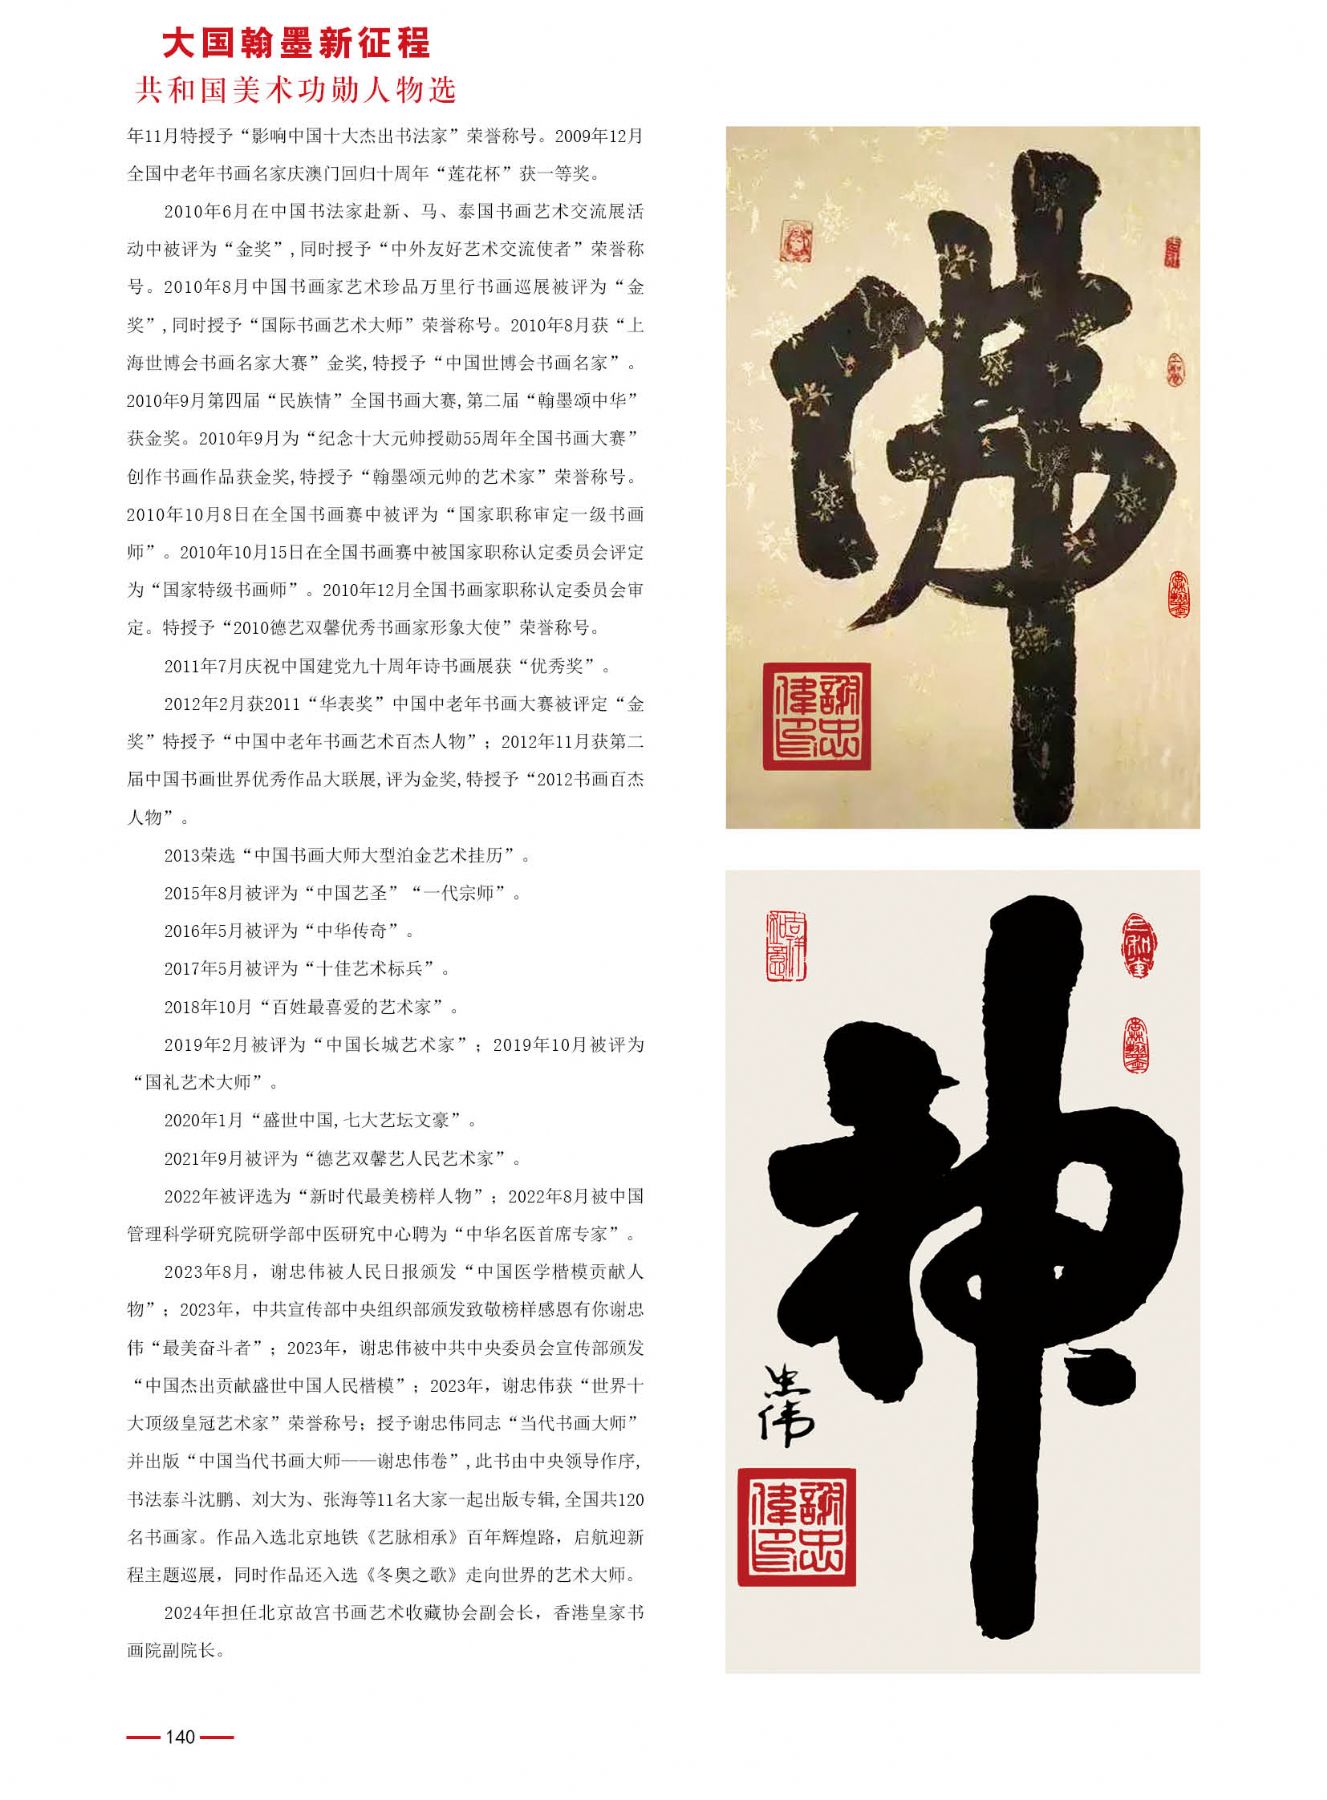 大国翰墨新征程
共和国美术功勋人物选
年11月特授予“影响中国十大杰出书法家”荣誉称号。2009年12月
全国中老年书画名家庆澳门回归十周年“莲花杯”获一等奖。
2010年6月在中国书法家赴新、马、泰国书画艺术交流展活
动中被评为“金奖”,同时授予“中外友好艺术交流使者”荣誉称
号。2010年8月中国书画家艺术珍品万里行书画巡展被评为“金
奖”,同时授予“国际书画艺术大师”荣誉称号。2010年8月获“上
海世博会书画名家大赛”金奖,特授予“中国世博会书画名家”。
2010年9月第四届“民族情”全国书画大赛,第二届“翰墨颂中华”
获金奖。2010年9月为“纪念十大元帅授勋55周年全国书画大赛”
创作书画作品获金奖,特授予“翰墨颂元帅的艺术家”荣誉称号。
2010年10月8日在全国书画赛中被评为“国家职称审定一级书画
师”。2010年10月15日在全国书画赛中被国家职称认定委员会评定
为“国家特级书画师”。2010年12月全国书画家职称认定委员会审
定。特授予“2010德艺双馨优秀书画家形象大使”荣誉称号。
2011年7月庆祝中国建党九十周年诗书画展获“优秀奖”。
2012年2月获2011“华表奖”中国中老年书画大赛被评定“金
奖”特授予“中国中老年书画艺术百杰人物”；2012年11月获第二
届中国书画世界优秀作品大联展,评为金奖,特授予“2012书画百杰
人物”。
2013荣选“中国书画大师大型泊金艺术挂历”。
2015年8月被评为“中国艺圣”“一代宗师”。
2016年5月被评为“中华传奇”。
2017年5月被评为“十佳艺术标兵”。
2018年10月“百姓最喜爱的艺术家”。
2019年2月被评为“中国长城艺术家”；2019年10月被评为
“国礼艺术大师”。
2020年1月“盛世中国,七大艺坛文豪”。
2021年9月被评为“德艺双馨艺人民艺术家”。
2022年被评选为“新时代最美榜样人物”；2022年8月被中国
管理科学研究院研学部中医研究中心聘为“中华名医首席专家”。
2023年8月，谢忠伟被人民日报颁发“中国医学楷模贡献人
物”；2023年，中共宣传部中央组织部颁发致敬榜样感恩有你谢忠
伟“最美奋斗者”；2023年，谢忠伟被中共中央委员会宣传部颁发
“中国杰出贡献盛世中国人民楷模”；2023年，谢忠伟获“世界十
大顶级皇冠艺术家”荣誉称号；授予谢忠伟同志“当代书画大师”
并出版“中国当代书画大师——谢忠伟卷”,此书由中央领导作序,
书法泰斗沈鹏、刘大为、张海等11名大家一起出版专辑,全国共120
名书画家。作品入选北京地铁《艺脉相承》百年辉煌路，启航迎新
程主题巡展，同时作品还入选《冬奥之歌》走向世界的艺术大师。
2024年担任北京故宫书画艺术收藏协会副会长，香港皇家书
画院副院长。
140
佛
三和堂
謝忠
偉印
神
吉祥
如意
三和堂
忠伟
謝忠
偉印